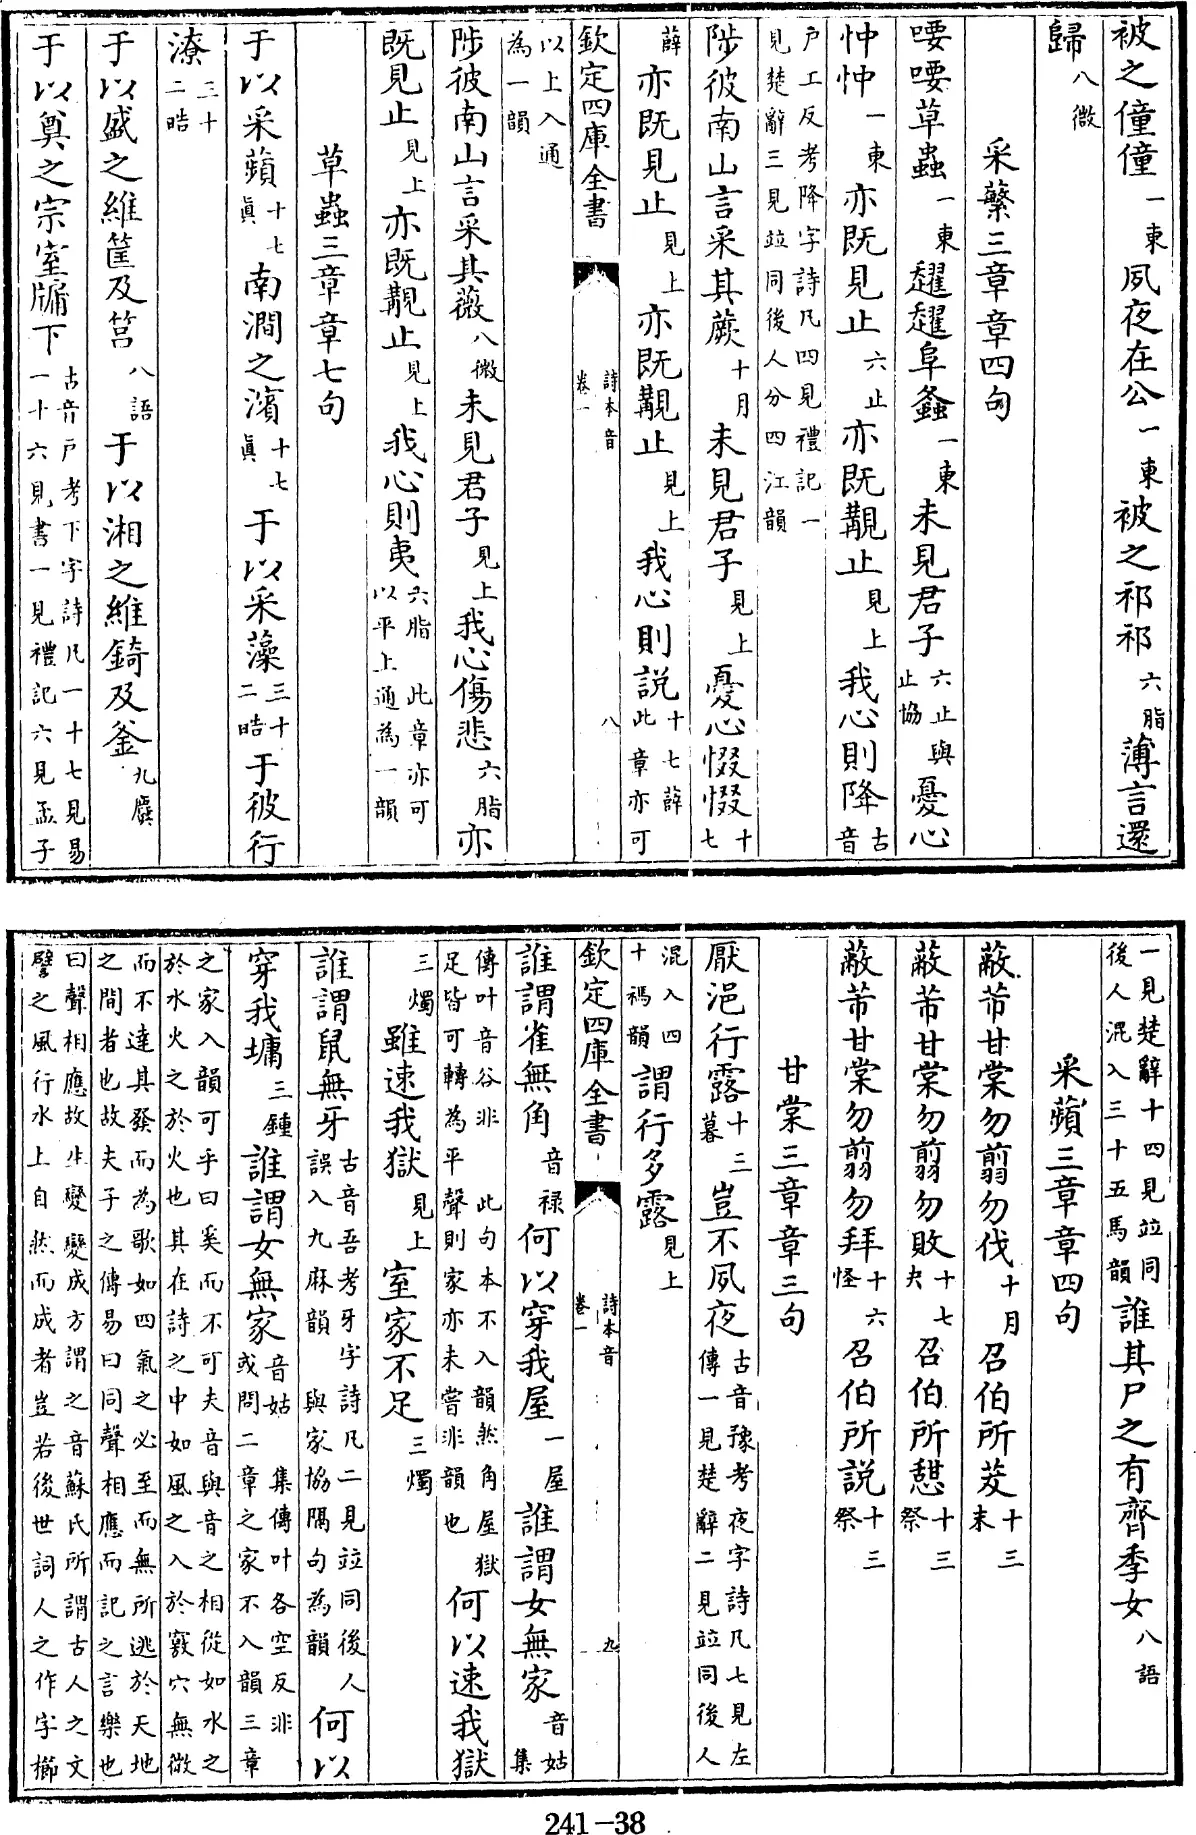 被之僮僮一東夙夜在公一東被之祁祁六脂薄言還
歸八微
采蘩三章章四句
喓喓草蟲一東趯趯阜螽一東未見君子六止與止協憂心
忡忡一東亦既見止六止亦既覯止見上我心則降古音
戶工反考降字詩凡四見禮記一見楚辭三見竝同後人分四江韻
陟彼南山言采其蕨十月未見君子見上憂心惙惙十七
薛亦既見止見上亦既覯止見上我心則説十七薛此章亦可
欽定四庫全書 詩本音 卷一 八
以上入通為一韻
陟彼南山言采其薇八微未見君子見上我心傷悲六脂亦
既見止見上亦既覯止見上我心則夷六脂 此章亦可以平上通為一韻
草蟲三章章七句
于以采蘋十七眞南澗之濱十七眞于以采藻三十二晧于彼行
潦三十二晧
于以盛之維筐及筥八語于以湘之維錡及釜九麌
于以奠之宗室牖下古音戶考下字詩凡一十七見易一十六見書一見禮記六見孟子
一見楚辭十四見竝同後人混入三十五馬韻誰其尸之有齊季女八語
采蘋三章章四句
蔽芾甘棠勿翦勿伐十月召伯所茇十三末
蔽芾甘棠勿翦勿敗十七夬召伯所憇十三祭
蔽芾甘棠勿翦勿拜十六怪召伯所説十三祭
甘棠三章章三句
厭浥行露十三暮豈不夙夜古音豫考夜字詩凡七見左傳一見楚辭二見竝同後人
混入四十禡韻謂行多露見上
欽定四庫全書 詩本音 卷一 九
誰謂雀無角音禄何以穿我屋一屋誰謂女無家音姑集
傳叶音谷非 此句本不入韻然角屋獄足皆可轉為平聲則家亦未嘗非韻也何以速我獄
三燭雖速我獄見上室家不足三燭
誰謂鼠無牙古音吾考牙字詩凡二見竝同後人誤入九麻韻 與家協隔句為韻何以
穿我墉三鍾誰謂女無家音姑 集傳叶各空反非或問二章之家不入韻三章
之家入韻可乎曰奚而不可夫音與音之相從如水之於水火之於火也其在詩之中如風之入於竅穴無微
而不達其發而為歌如四氣之必至而無所逃於天地之間者也故夫子之傳易曰同聲相應而記之言樂也
曰聲相應故生變變成方謂之音蘇氏所謂古人之文譬之風行水上自然而成者豈若後世詞人之作字櫛
241-38